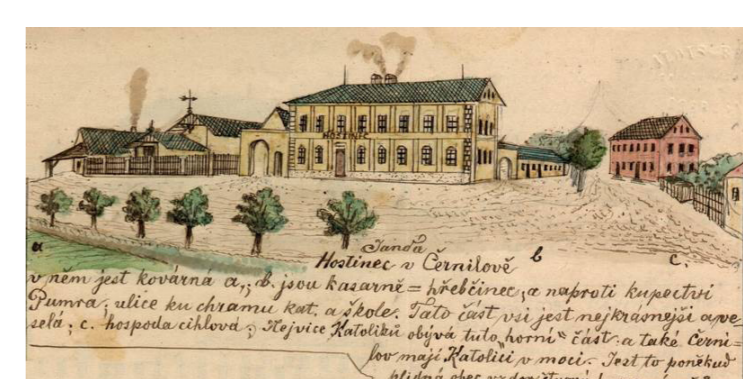 HOSTINEC
Janda
a Hostinec v Černilově b c.
v něm jest kovárna a,; b. jsou kasárně = hřebčinec, a naproti kupectví
Pumra; ulice ku chrámu kat. a škole. Tato část vsi jest nejkrásnější a ve-
selá; c. hospoda cihlová; Nejvíce Katolíků obývá tuto „horní“ část a také Černi=
lov mají Katolíci v moci. Jest to poněkud
obec